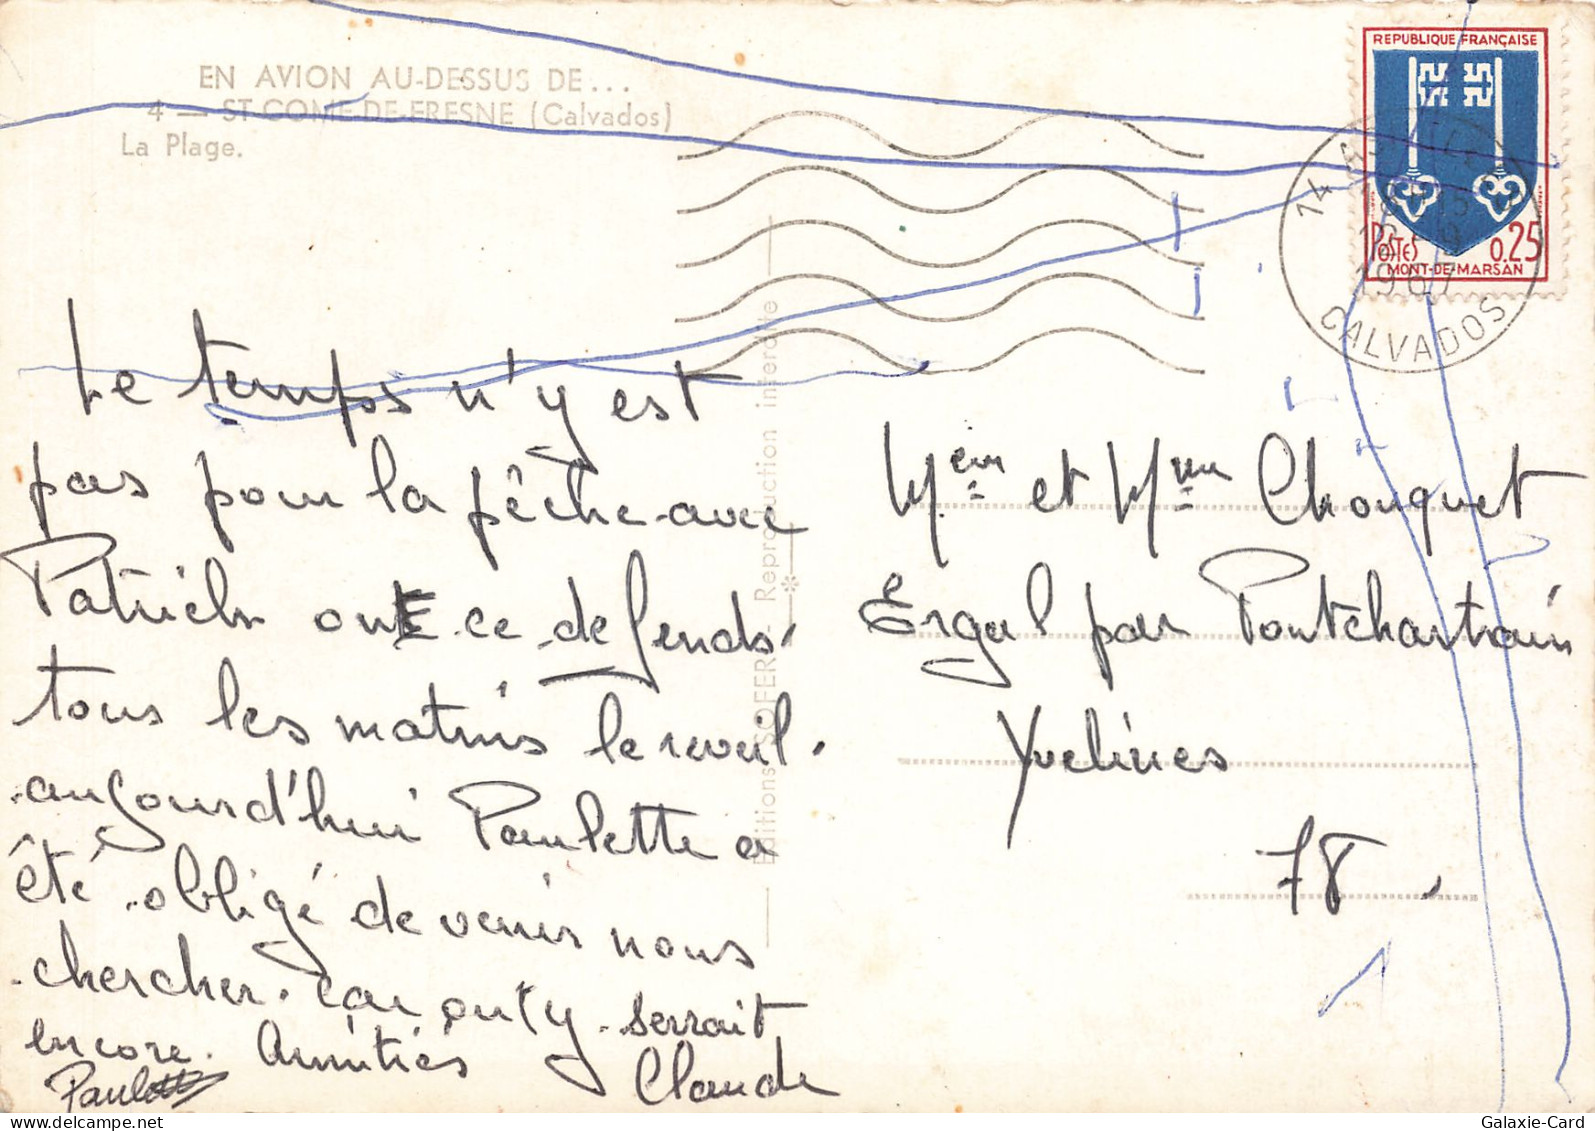 EN AVION AU-DESSUS DE...
4 — ST-COME-DE-FRESNE (Calvados)
La Plage.
REPUBLIQUE FRANÇAISE
POSTES 0.25
MONT-DE-MARSAN
14
1967
CALVADOS
Editions SOFER - Reproduction interdite
Le temps n'y est
pas pour la pêche avec
Patrick on ce defends.
tous les matins le reveil.
aujourd'hui Paulette a
été obligé de venir nous
chercher. car ont y serrait
encore. Amitiés
Paulette
Claude
Mr et Mme Chouquet
Ergal par Pontchartrain
Yvelines
78.
Galaxie-Card